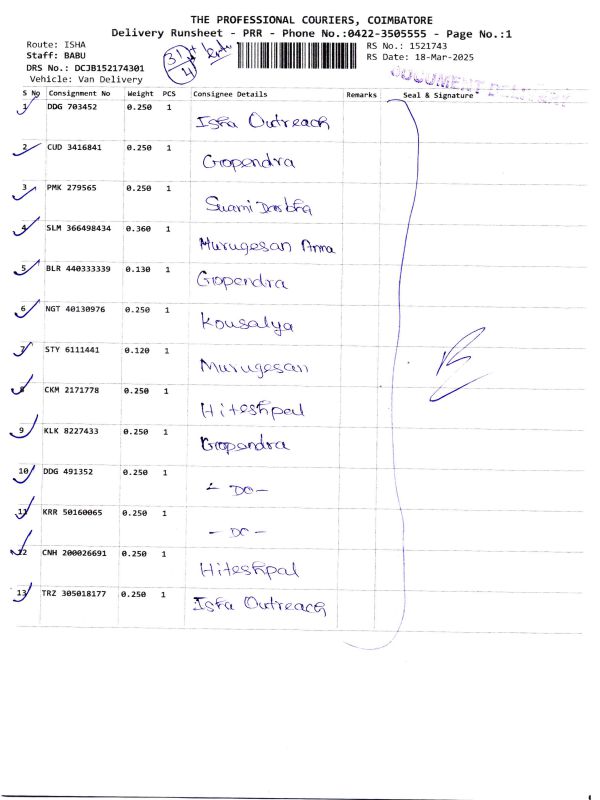 THE PROFESSIONAL COURIERS, COIMBATORE
Delivery Runsheet - PRR - Phone No.:0422-3505555 - Page No.:1
Route: ISHA
Staff: BABU
DRS No.: DCJB152174301
Vehicle: Van Delivery
31
4
RS No.: 1521743
RS Date: 18-Mar-2025
DOCUMENT DELIVERY
S No Consignment No Weight PCS Consignee Details Remarks Seal & Signature
1 DDG 703452 0.250 1
Isha Outreach
2 CUD 3416841 0.250 1
Gopendra
3 PMK 279565 0.250 1
Swami
4 SLM 366498434 0.360 1
Murugesan Anna
5 BLR 440333339 0.130 1
Gopendra
6 NGT 40130976 0.250 1
Kousalya
7 STY 6111441 0.120 1
Murugesan
8 CKM 2171778 0.250 1
Hiteshpal
9 KLK 8227433 0.250 1
Gopendra
10 DDG 491352 0.250 1
- DO -
11 KRR 50160065 0.250 1
- DO -
12 CNH 200026691 0.250 1
Hiteshpal
13 TRZ 305018177 0.250 1
Isha Outreach